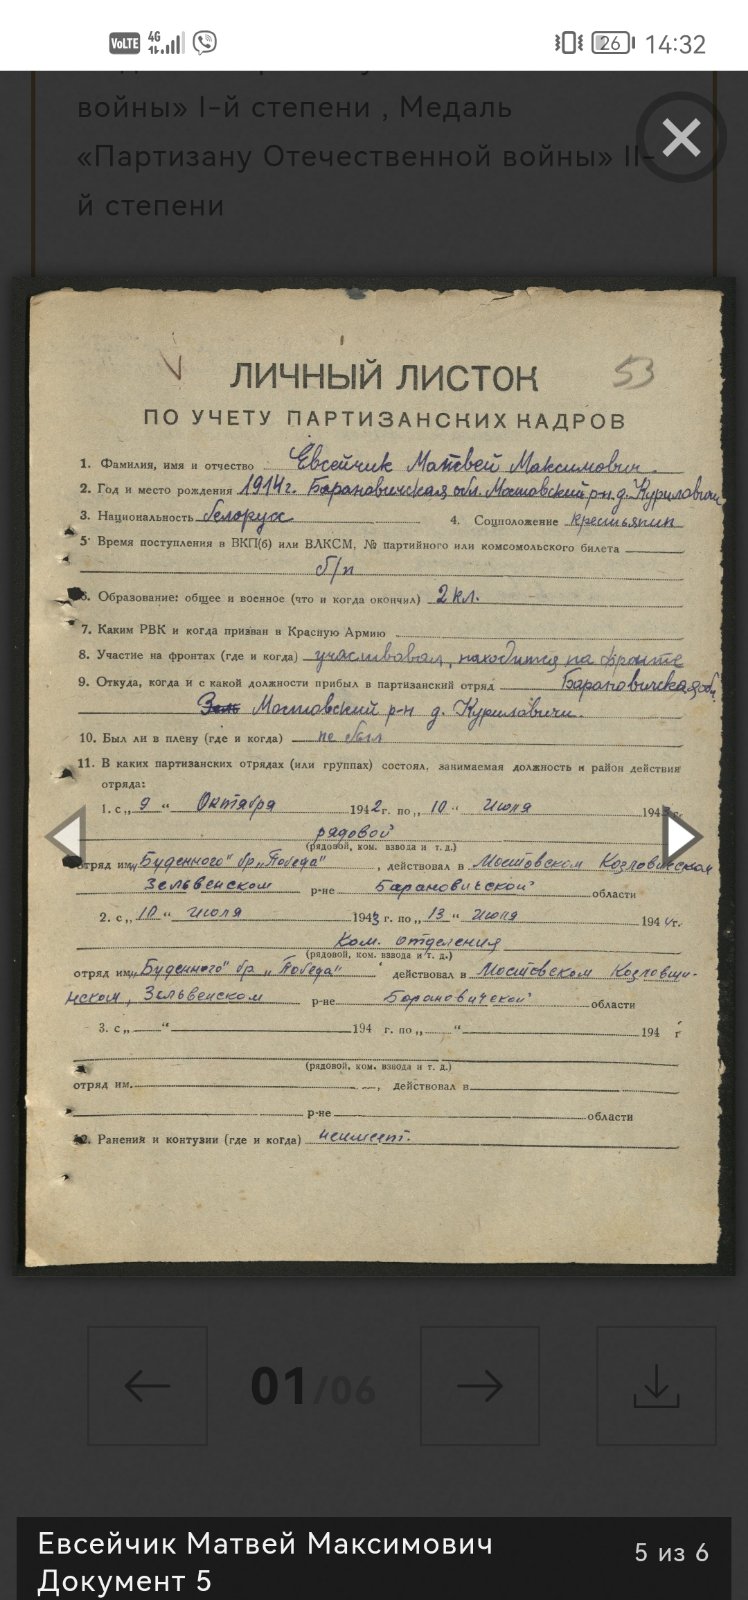 VoLTE 4G 26 14:32
войны» I-й степени , Медаль
«Партизану Отечественной войны» II-
й степени
53
ЛИЧНЫЙ ЛИСТОК
ПО УЧЕТУ ПАРТИЗАНСКИХ КАДРОВ
1. Фамилия, имя и отчество Евсейчик Матвей Максимович.
2. Год и место рождения 1914г. Барановичская обл. Мостовский р-н. д. Куриловичи
3. Национальность белорусс 4. Соцположение крестьянин
5. Время поступления в ВКП(б) или ВЛКСМ, № партийного или комсомольского билета
б/п
6. Образование: общее и военное (что и когда окончил) 2 кл.
7. Каким РВК и когда призван в Красную Армию
8. Участие на фронтах (где и когда) участвовал, находится на фронте
9. Откуда, когда и с какой должности прибыл в партизанский отряд Барановичская об.
Мостовский р-н д. Куриловичи.
10. Был ли в плену (где и когда) не был
11. В каких партизанских отрядах (или группах) состоял, занимаемая должность и район действия
отряда:
1. с „ 9 “ Октября 1942 г. по „ 10 “ июля 1943 г.
рядовой
(рядовой, ком. взвода и т. д.)
отряд им. „Буденного" бр „Победа" , действовал в Мостовском Козловщинском
Зельвенском р-не Барановичской области
2. с „ 10 “ июля 1943 г. по „ 13 “ июля 1944 г.
Ком. отделения
(рядовой, ком. взвода и т. д.)
отряд им. „Буденного" бр „Победа" действовал в Мостовском Козловщи-
нском, Зельвенском р-не Барановичской области
3. с „ “ 194 г. по „ “ 194 г
(рядовой, ком. взвода и т. д.)
отряд им. , действовал в
р-не области
12. Ранений и контузии (где и когда) неимеет.
01/06
Евсейчик Матвей Максимович 5 из 6
Документ 5